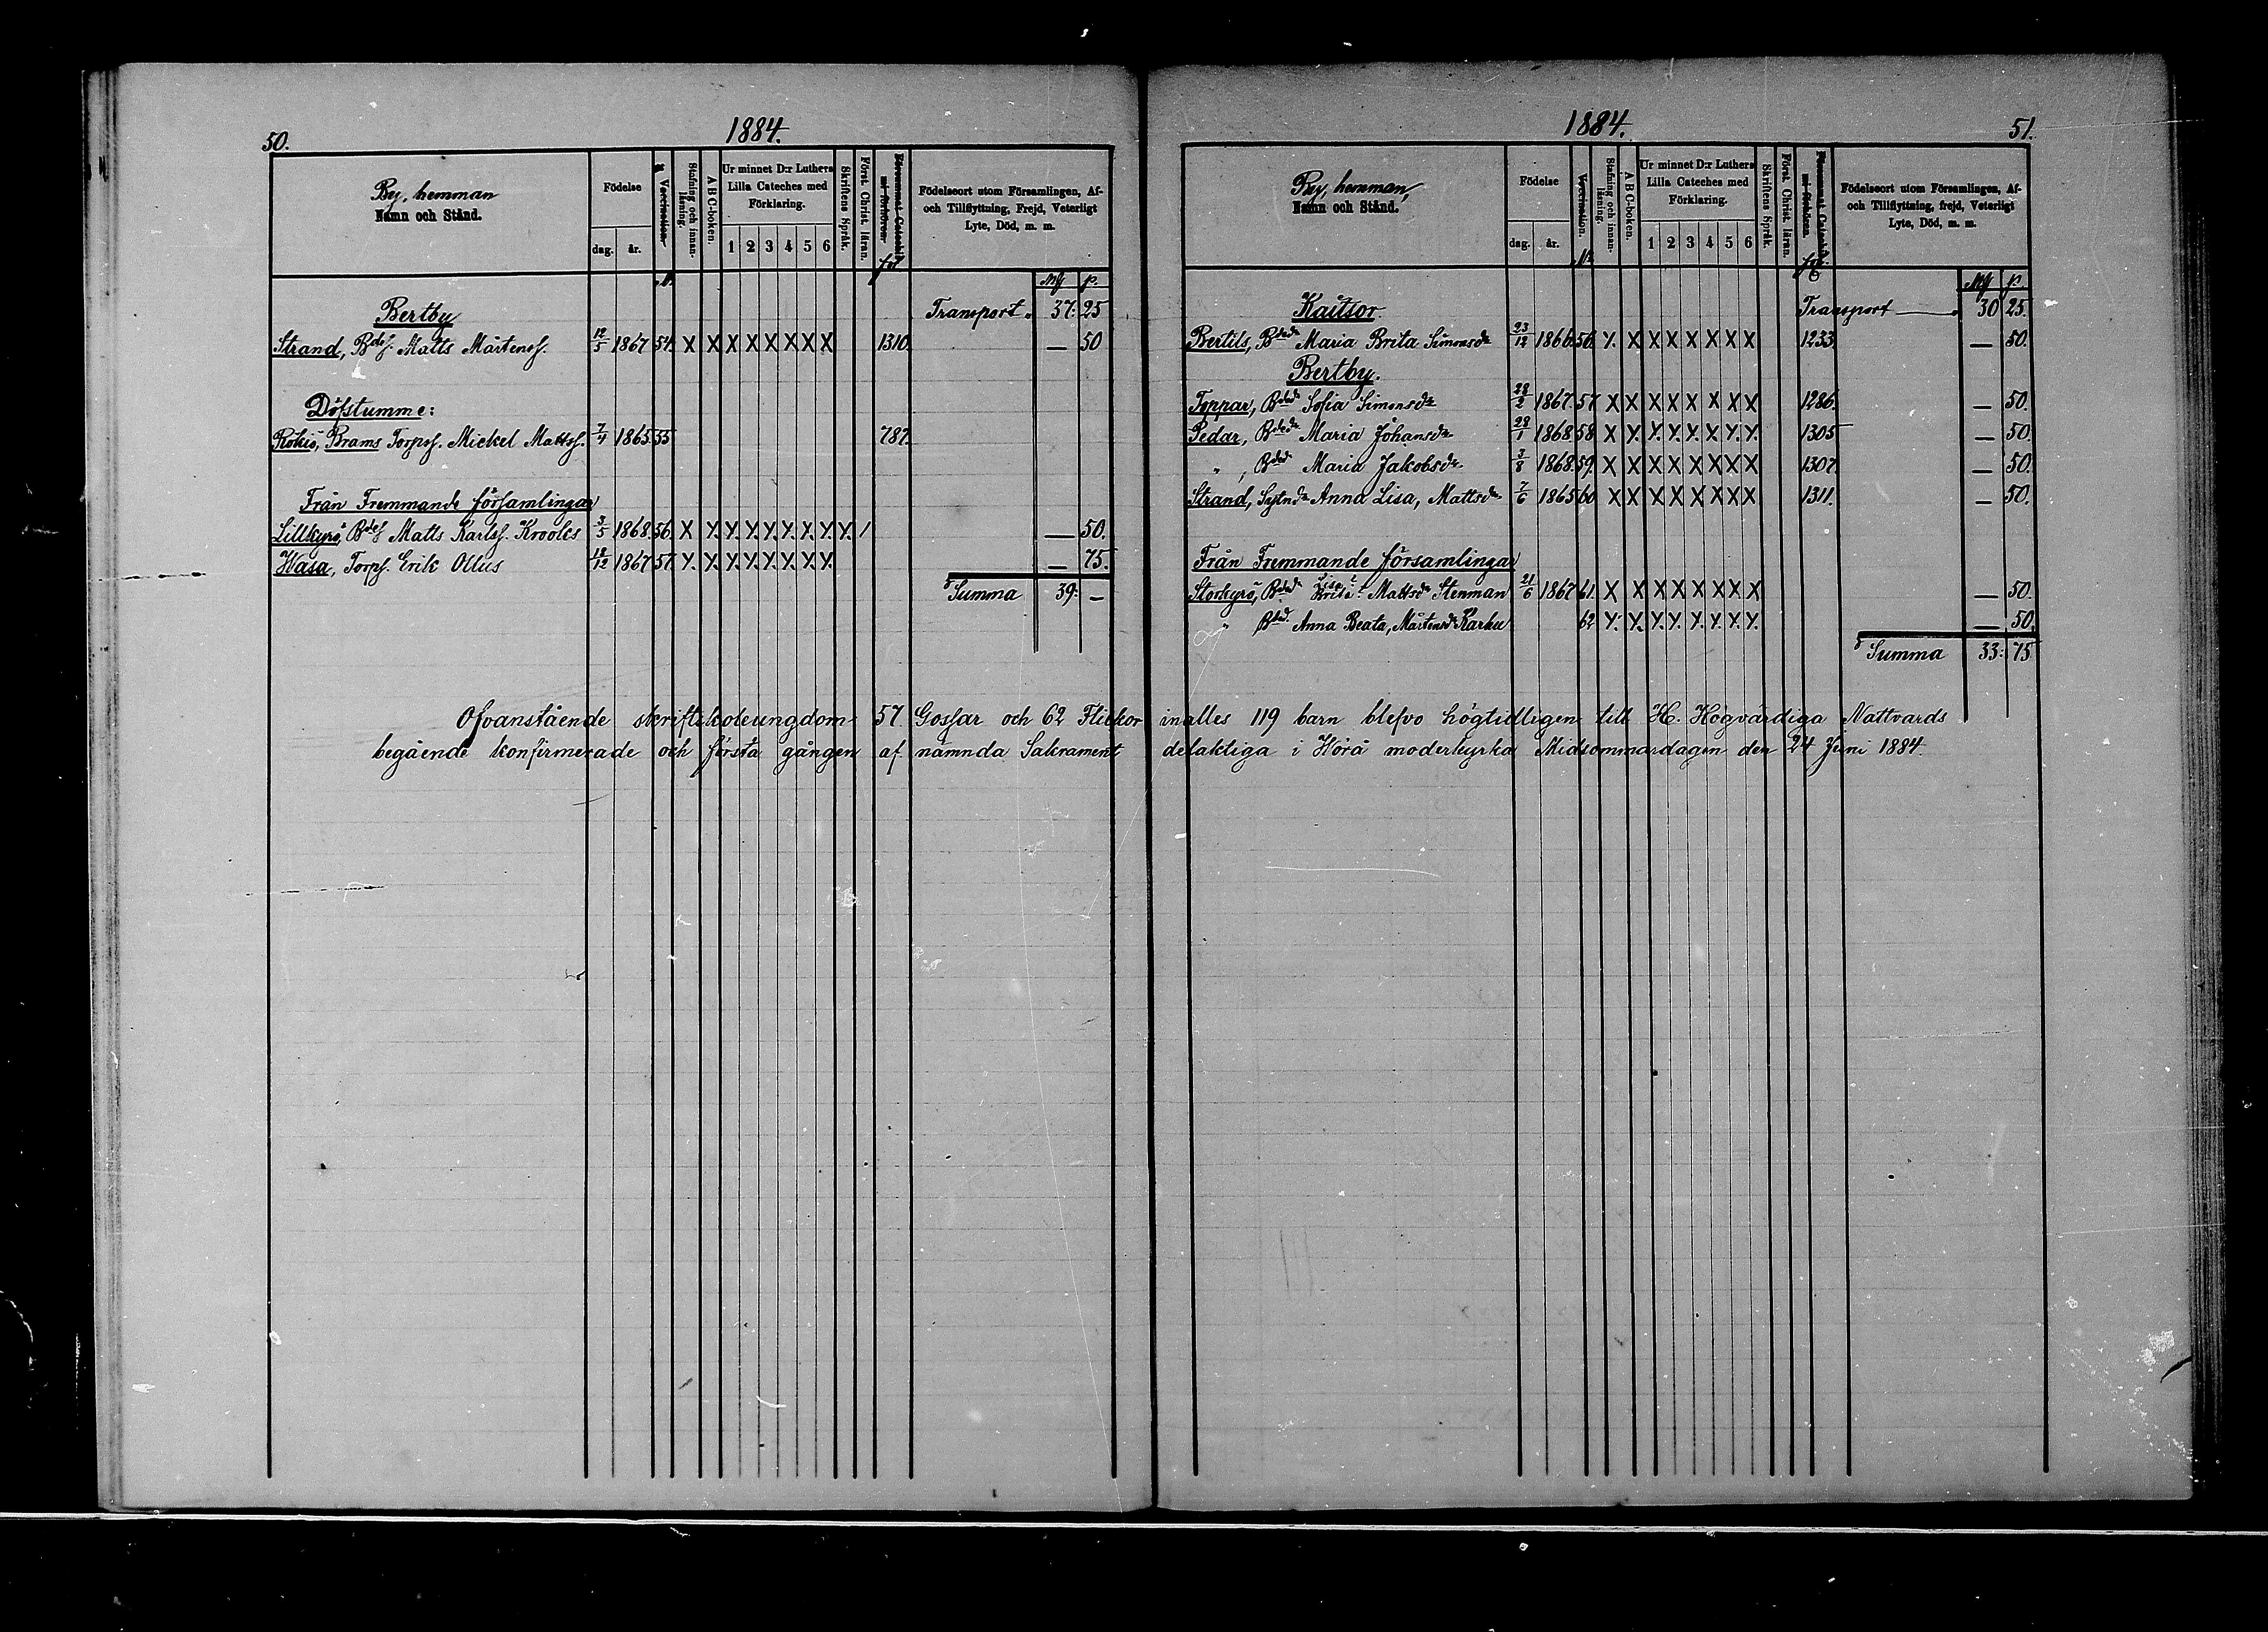 50.
1884.
By, hemman
Namn och Stånd.
Födelse
dag. år.
Vaccination.
Stafning och innanläsning.
A B C-boken.
Ur minnet D:r Luthers Lilla Cateches med Förklaring.
1 2 3 4 5 6
Skriftens Språk.
Först. Christ. läran.
Födelseort utom Församlingen, Af- och Tillflyttning, Frejd, Veterligt Lyte, Död, m. m.
Mf p.
Bertby Transport 37: 25
Strand, Bdes. Matts Mårtens. 12/5 1867 54. X X X X X X X X 1310. — 50
Döfstumme:
Rökiö, Brams Torps. Mickel Mattss. 7/4 1865 55 787.
Från Fremmande församlingar
Lillkyro, Bdes Matts Karlss. Krooks 3/5 1868. 56. X X X X X X X X X / — 50.
Wasa, Torps. Erik Ollus 18/12 1867 57 X X X X X X X X — 75.
Summa 39: —
1884.
51.
By, hemman,
Namn och Stånd.
Födelse
dag. år.
Vaccination.
Stafning och innanläsning.
A B C-boken.
Ur minnet D:r Luthers Lilla Cateches med Förklaring.
1 2 3 4 5 6
Skriftens Språk.
Först. Christ. läran.
Födelseort utom Församlingen, Af- och Tillflyttning, frejd, Veterligt Lyte, Död, m. m.
Mf p
Kaitsor. Transport — 30 25.
Bertils, Bdedr Maria Brita Simonsdr 23/12 1866. 56. X X X X X X X X 1233 — 50.
Bertby.
Toppar, Bdedr Sofia Simonsdr 28/2 1867. 57 X X X X X X X X 1286. — 50.
Pedar, Bdedr Maria Johansdr 28/1 1868 58 X X X X X X X X 1305 — 50.
" , Bdedr Maria Jakobsdr 3/8 1868. 59. X X X X X X X X 1307. — 50.
Strand, Sytndr Anna Lisa, Mattsdr 7/6 1865 60 X X X X X X X X 1311. — 50.
Från Fremmande församlingar
Storkyro, Bdedr Lisa Brita Mattsdr Stenman 21/6 1867 61. X X X X X X X X — 50.
" Bdedr Anna Beata, Mårtensdr Karhu 62 X X X X X X X X — 50.
Summa 33: 75
Ofvanstående skriftskoleungdom 57 Gossar och 62 Flickor inalles 119 barn blefvo högtidligen till H. Högvärdiga Nattvards
begående konfirmerade och första gången af nämnda Sakrament delaktiga i Wörå moderkyrka Midsommardagen den 24 Juni 1884.